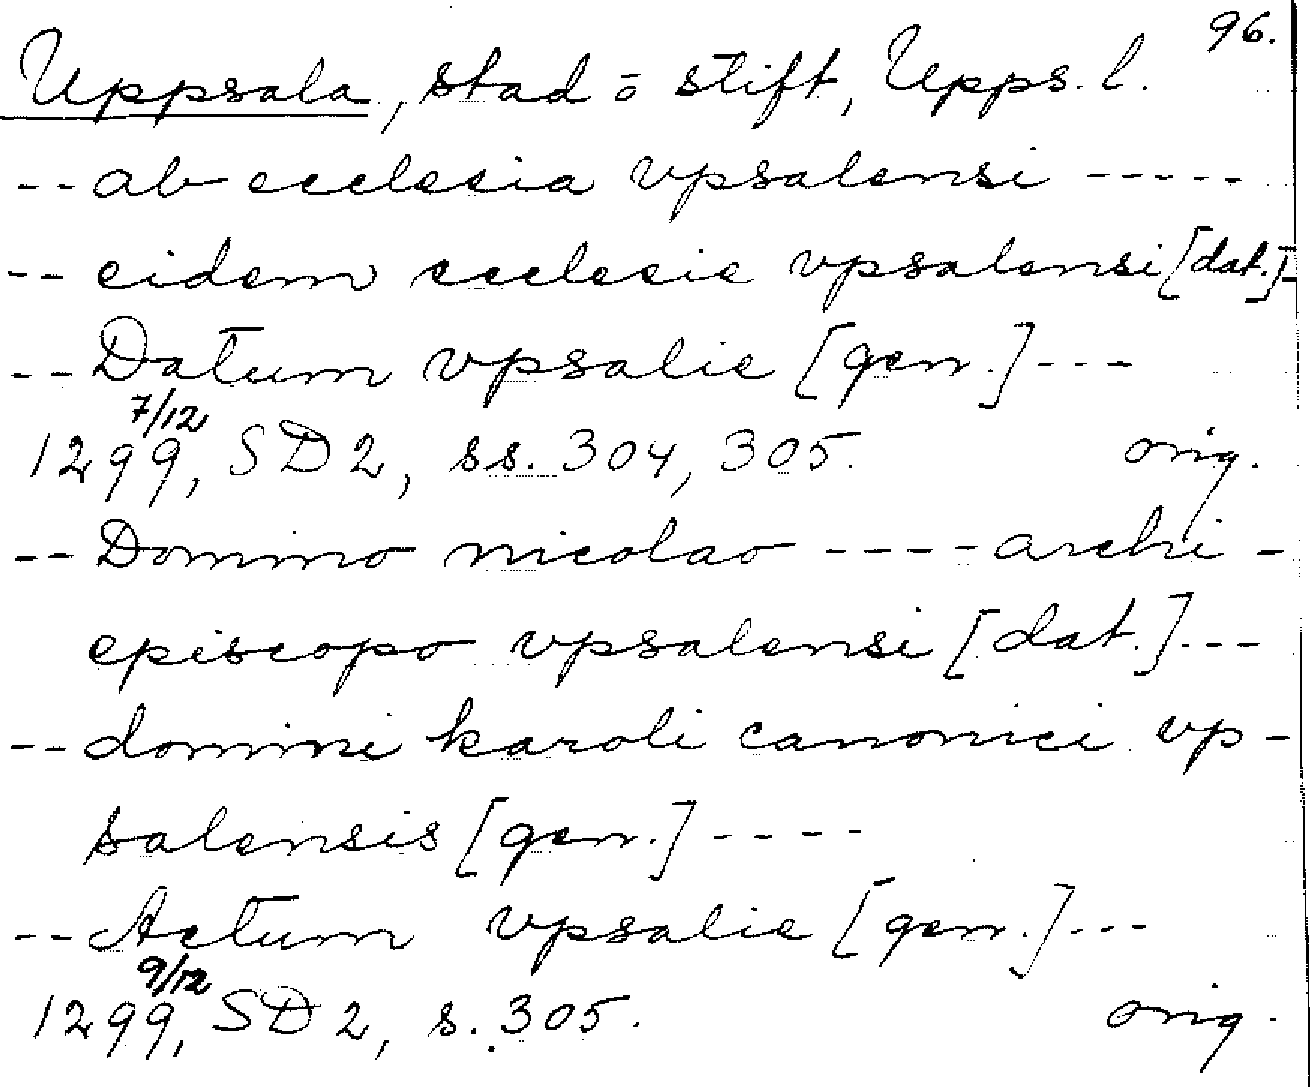 96.
Uppsala, stad o. stift, Upps. l.
-- ab ecclesia vpsalensi -----
-- eidem ecclesie vpsalensi [dat.]-
-- Datum vpsalie [gen.] ---
7/12
1299, SD 2, ss. 304, 305. orig.
-- Domino nicolao ---- archi-
episcopo vpsalensi [dat.] ---
-- domini karoli canonici vp-
salensis [gen.] ----
-- Actum vpsalie [gen.] ---
9/12
1299, SD 2, s. 305. orig.